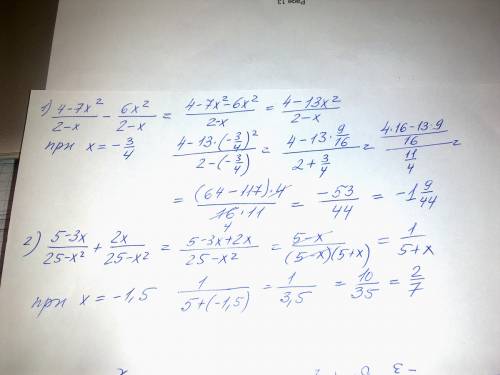 Page 13
1) (4-7x²)/(2-x) - (6x²)/(2-x) = (4-7x²-6x²)/(2-x) = (4-13x²)/(2-x)
при x = -3/4 (4-13·(-3/4)²)/(2-(-3/4)) = (4-13·9/16)/(2+3/4) = ((4·16-13·9)/16)/(11/4) =
= ((64-117)·4)/(16·11) = -53/44 = -1 9/44
4
2) (5-3x)/(25-x²) + (2x)/(25-x²) = (5-3x+2x)/(25-x²) = (5-x)/((5-x)(5+x)) = 1/(5+x)
при x = -1,5 1/(5+(-1,5)) = 1/3,5 = 10/35 = 2/7